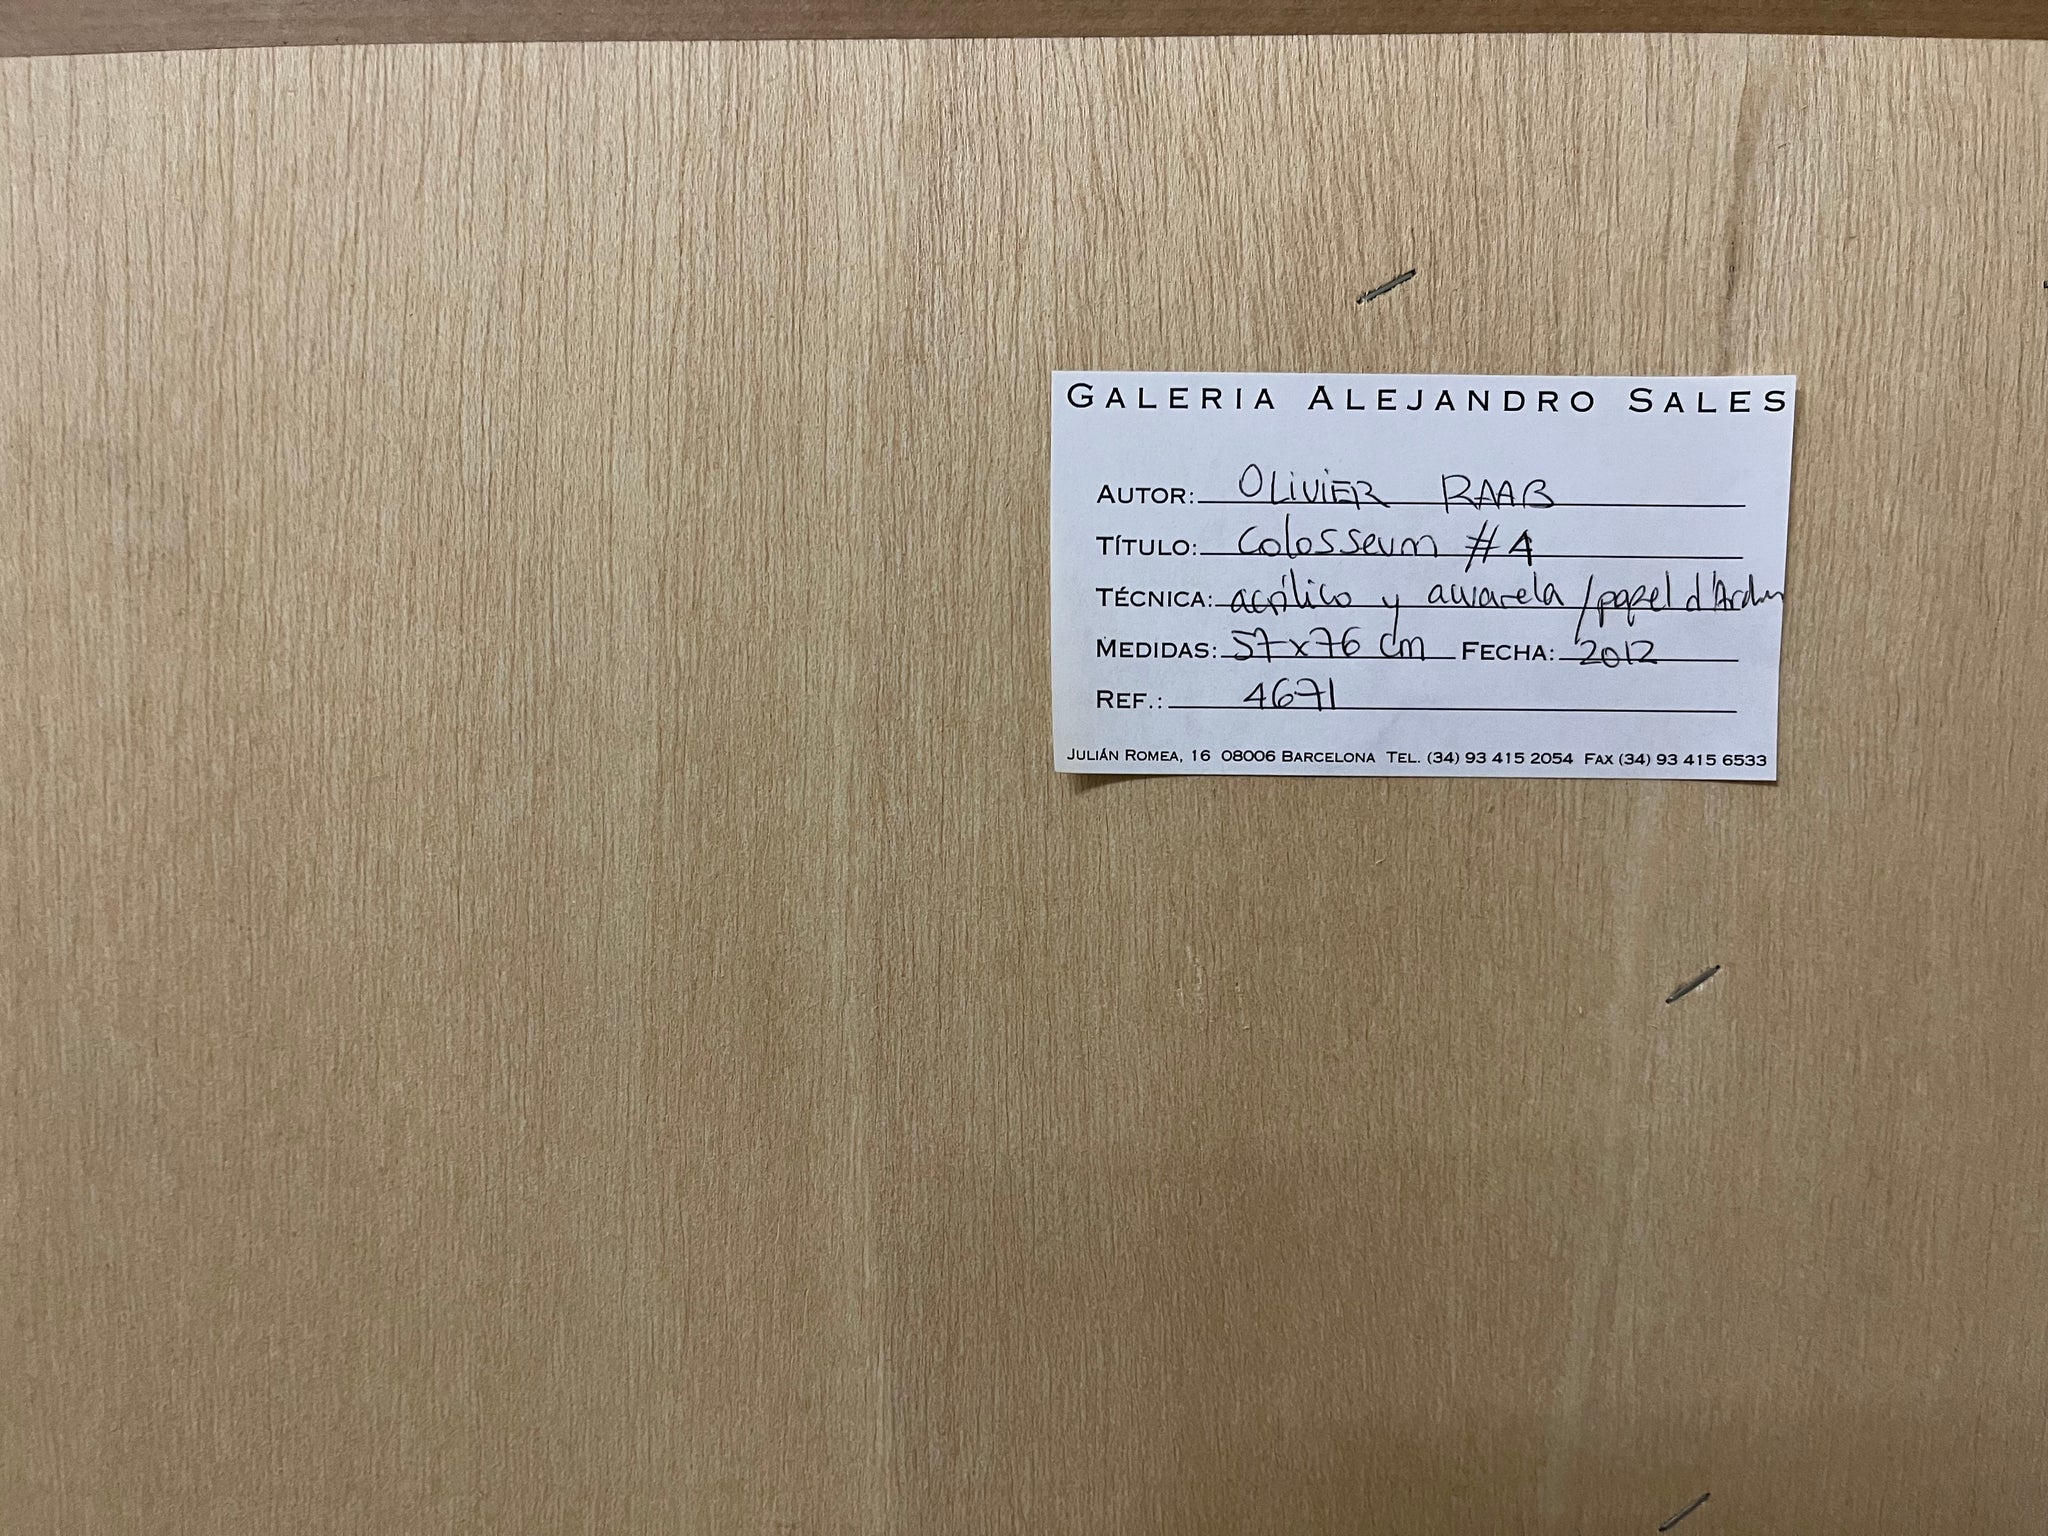 GALERIA ALEJANDRO SALES
AUTOR: OLIVIER RAAB
TÍTULO: Colosseum #4
TÉCNICA: acrílico y acuarela / papel
MEDIDAS: 57x76 cm FECHA: 2012
REF.: 4671
JULIÁN ROMEA, 16 08006 BARCELONA TEL. (34) 93 415 2054 FAX (34) 93 415 6533